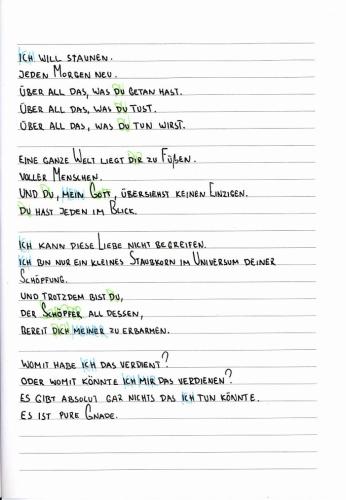 ICH WILL STAUNEN.
JEDEN MORGEN NEU.
ÜBER ALL DAS, WAS DU GETAN HAST.
ÜBER ALL DAS, WAS DU TUST.
ÜBER ALL DAS, WAS DU TUN WIRST.
EINE GANZE WELT LIEGT DIR ZU FÜßEN.
VOLLER MENSCHEN.
UND DU, MEIN GOTT, ÜBERSIEHST KEINEN EINZIGEN.
DU HAST JEDEN IM BLICK.
ICH KANN DIESE LIEBE NICHT BEGREIFEN.
ICH BIN NUR EIN KLEINES STAUBKORN IM UNIVERSUM DEINER
SCHÖPFUNG.
UND TROTZDEM BIST DU,
DER SCHÖPFER ALL DESSEN,
BEREIT DICH MEINER ZU ERBARMEN.
WOMIT HABE ICH DAS VERDIENT?
ODER WOMIT KÖNNTE ICH MIR DAS VERDIENEN?
ES GIBT ABSOLUT GAR NICHTS DAS ICH TUN KÖNNTE.
ES IST PURE GNADE.